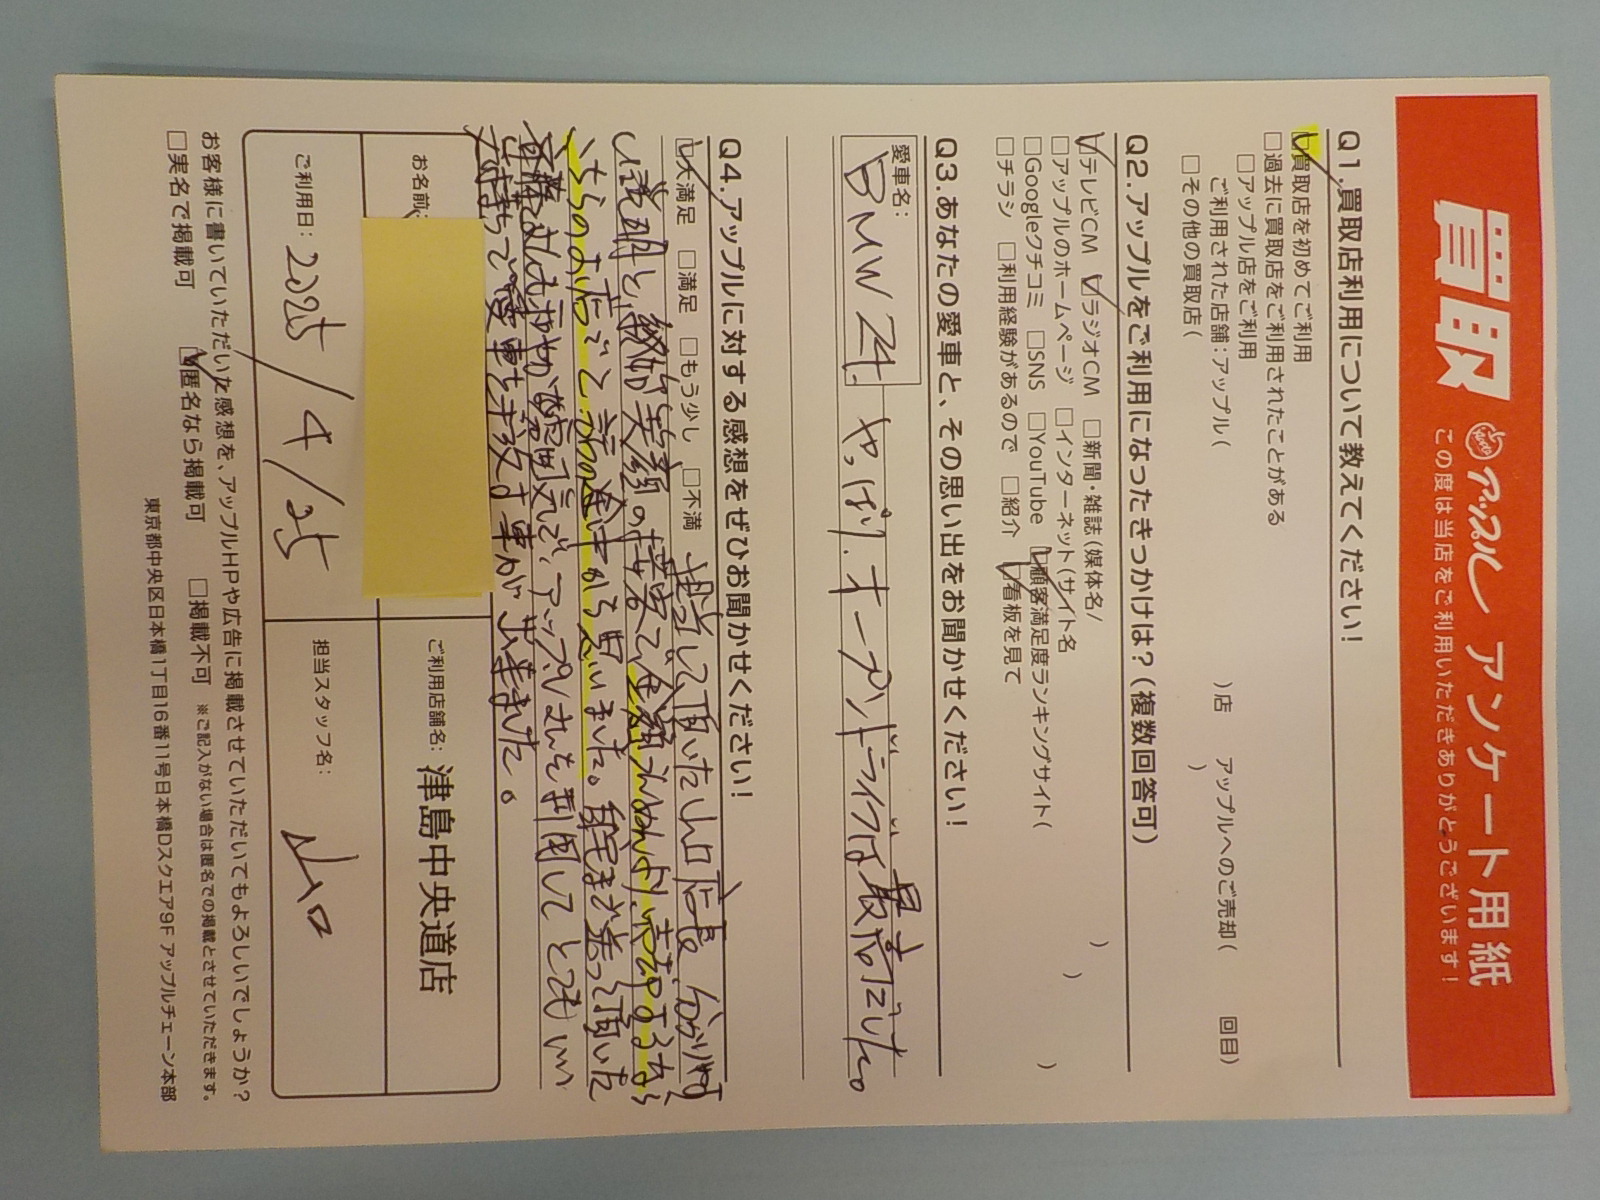 買取 アップル アンケート用紙
この度は当店をご利用いただきありがとうございます!
Q1.買取店利用について教えてください!
☑買取店を初めてご利用
□過去に買取店をご利用されたことがある
□アップル店をご利用
ご利用された店舗:アップル( )店 アップルへのご売却( 回目)
□その他の買取店( )
Q2.アップルをご利用になったきっかけは?(複数回答可)
☑テレビCM ☑ラジオCM □新聞・雑誌(媒体名/ )
□アップルのホームページ □インターネット(サイト名 )
□Googleクチコミ □SNS □YouTube ☑顧客満足度ランキングサイト( )
□チラシ □利用経験があるので □紹介 ☑看板を見て
Q3.あなたの愛車と、その思い出をお聞かせください!
愛車名:
BMW Z4 やっぱり、オープンドライブは最高だった。
Q4.アップルに対する感想をぜひお聞かせください!
☑大満足 □満足 □もう少し □不満
担当して頂いた山口店長、分かり易
い説明と、終始笑顔の接客で金額うんぬんより、売却するなら
こちらのお店でと、話の途中から思いました。
雰囲気で、アップルさんを利用してとてもいい
気持ちで愛車を手放す事が出来ました。
お名前:
ご利用店舗名: 津島中央道店
ご利用日: 2025/4/25
担当スタッフ名: 山口
お客様に書いていただいた感想を、アップルHPや広告に掲載させていただいてもよろしいでしょうか?
□実名で掲載可 ☑匿名なら掲載可 □掲載不可 ※ご記入がない場合は匿名での掲載とさせていただきます。
東京都中央区日本橋1丁目16番11号日本橋Dスクエア9F アップルチェーン本部